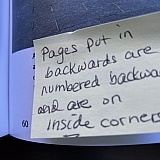 Pages put in
backwards are
numbered backwa
and are on
inside corners
60